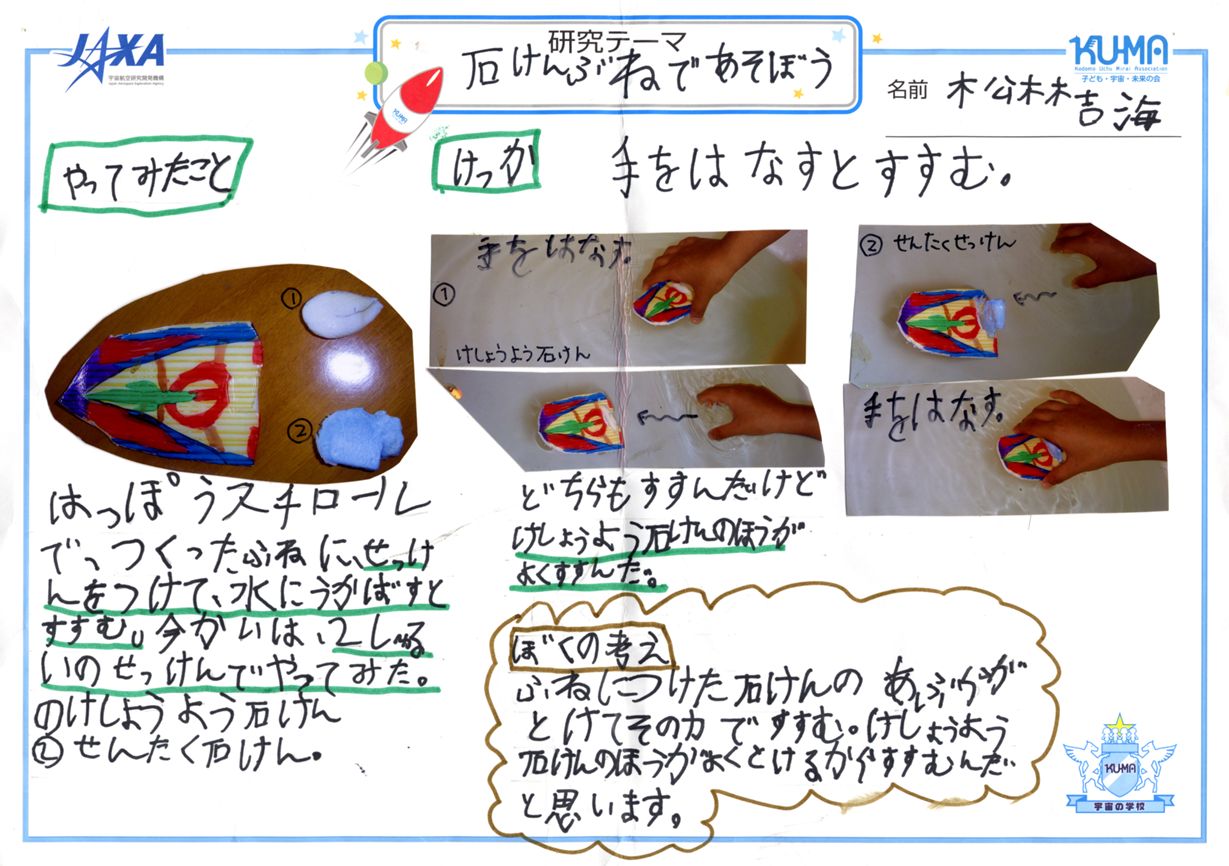 JAXA
宇宙航空研究開発機構
Japan Aerospace Exploration Agency
研究テーマ
石けんぶねであそぼう
KUMA
Kodomo Uchu Mirai Association
子ども・宇宙・未来の会
名前 松林吉海
KUMA
やってみたこと
①
②
はっぽうスチロール
でつくったふねに、せっけ
んをつけて、水にうかばすと
すすむ。今かいは、2しゅる
いのせっけんでやってみた。
①けしょうよう石けん
②せんたく石けん。
けっか
手をはなすとすすむ。
手をはなす。
①
けしょうよう石けん
② せんたくせっけん
手をはなす。
どちらもすすんだけど
けしょうよう石けんのほうが
よくすすんだ。
ぼくの考え
ふねにつけた石けんのあぶらが
とけてその力ですすむ。けしょうよう
石けんのほうがよくとけるからすすむんだ
と思います。
KUMA
宇宙の学校